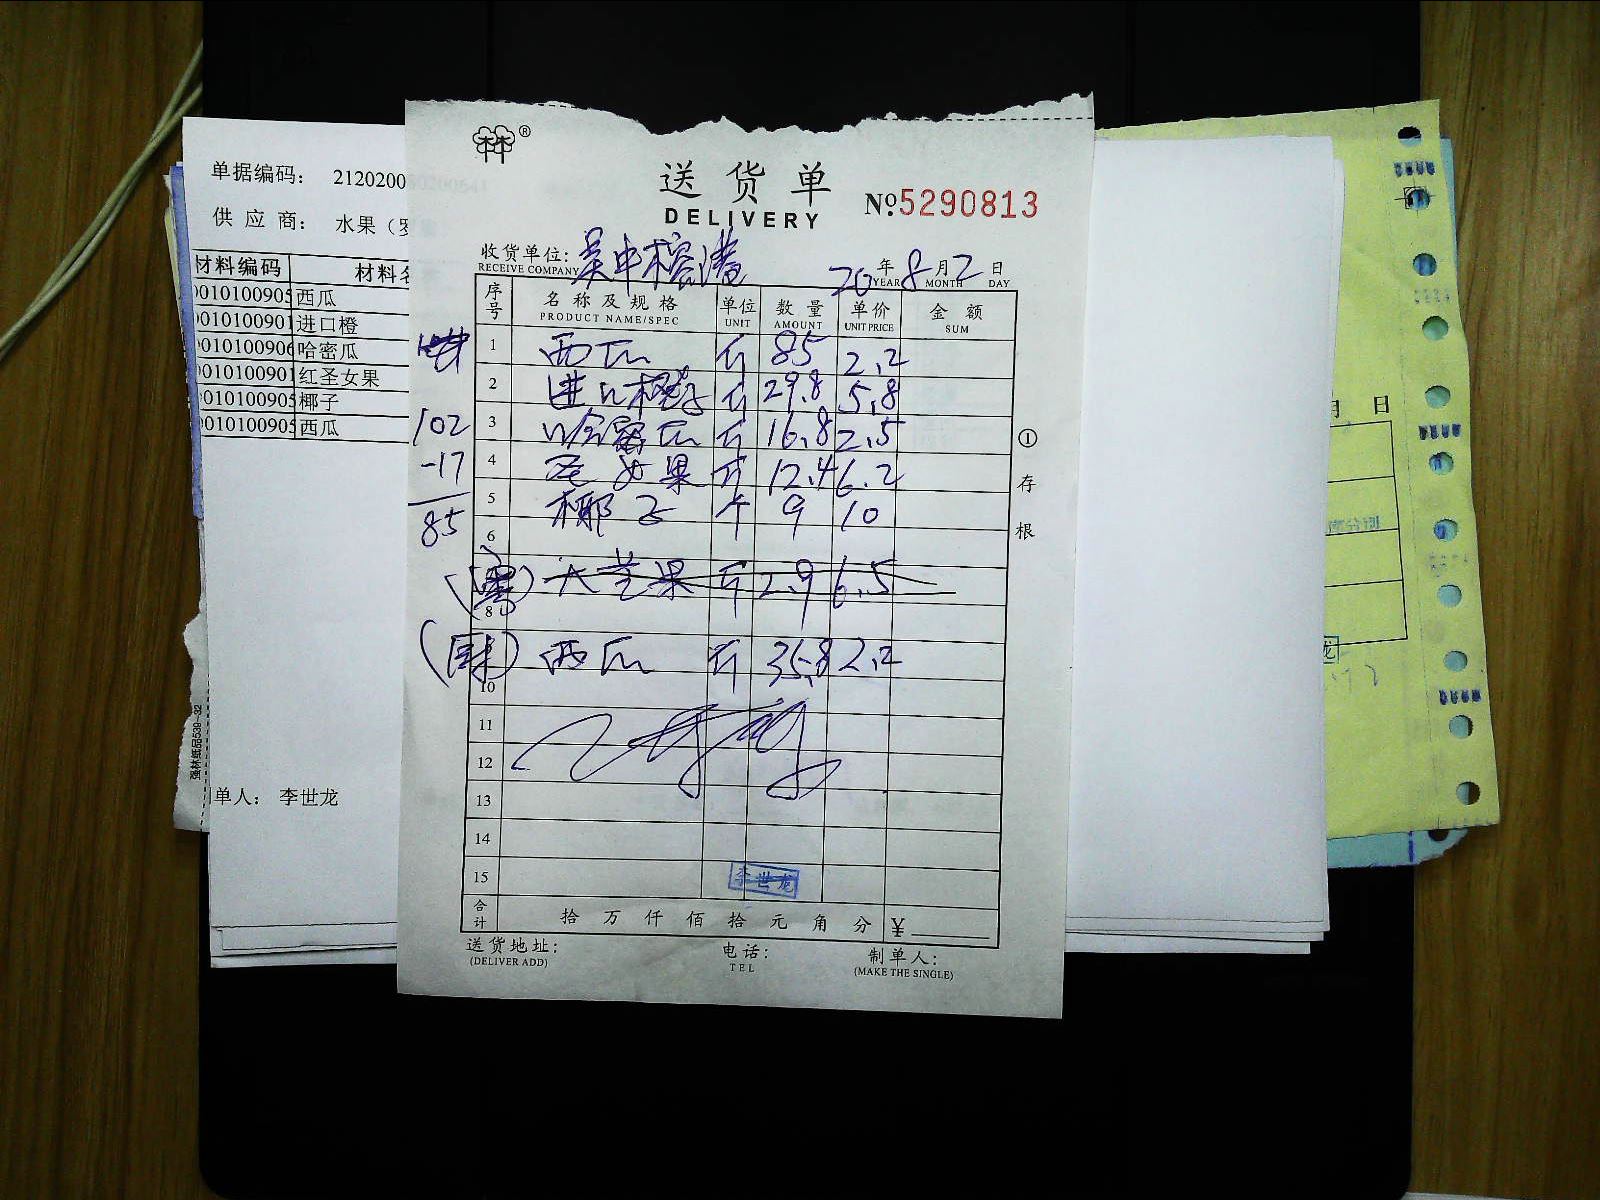 单据编码： 2120200
供 应 商： 水果（罗
材料编码 材料名
0010100905 西瓜
0010100901 进口橙
0010100906 哈密瓜
0010100901 红圣女果
0010100905 椰子
0010100905 西瓜
单人： 李世龙
®
送 货 单
DELIVERY
№ 5290813
收货单位: 吴中榕港
RECEIVE COMPANY
20 年 8 月 2 日
YEAR MONTH DAY
序号 名 称 及 规 格 单位 数 量 单价 金 额
PRODUCT NAME/SPEC UNIT AMOUNT UNIT PRICE SUM
1 西瓜 斤 85 2.2
2 进口橙子 斤 29.8 5.8
3 哈密瓜 斤 16.8 2.5
4 圣女果 斤 12.4 6.2
5 椰子 个 9 10
6
火龙果 斤 2.9 6.5
8
西瓜 斤 35.8 2.2
10
11
12
13
14
15
102
-17
85
李世龙
合计 拾 万 仟 佰 拾 元 角 分 ¥
送货地址: 电话: 制单人:
(DELIVER ADD) TEL (MAKE THE SINGLE)
① 存 根
月 日